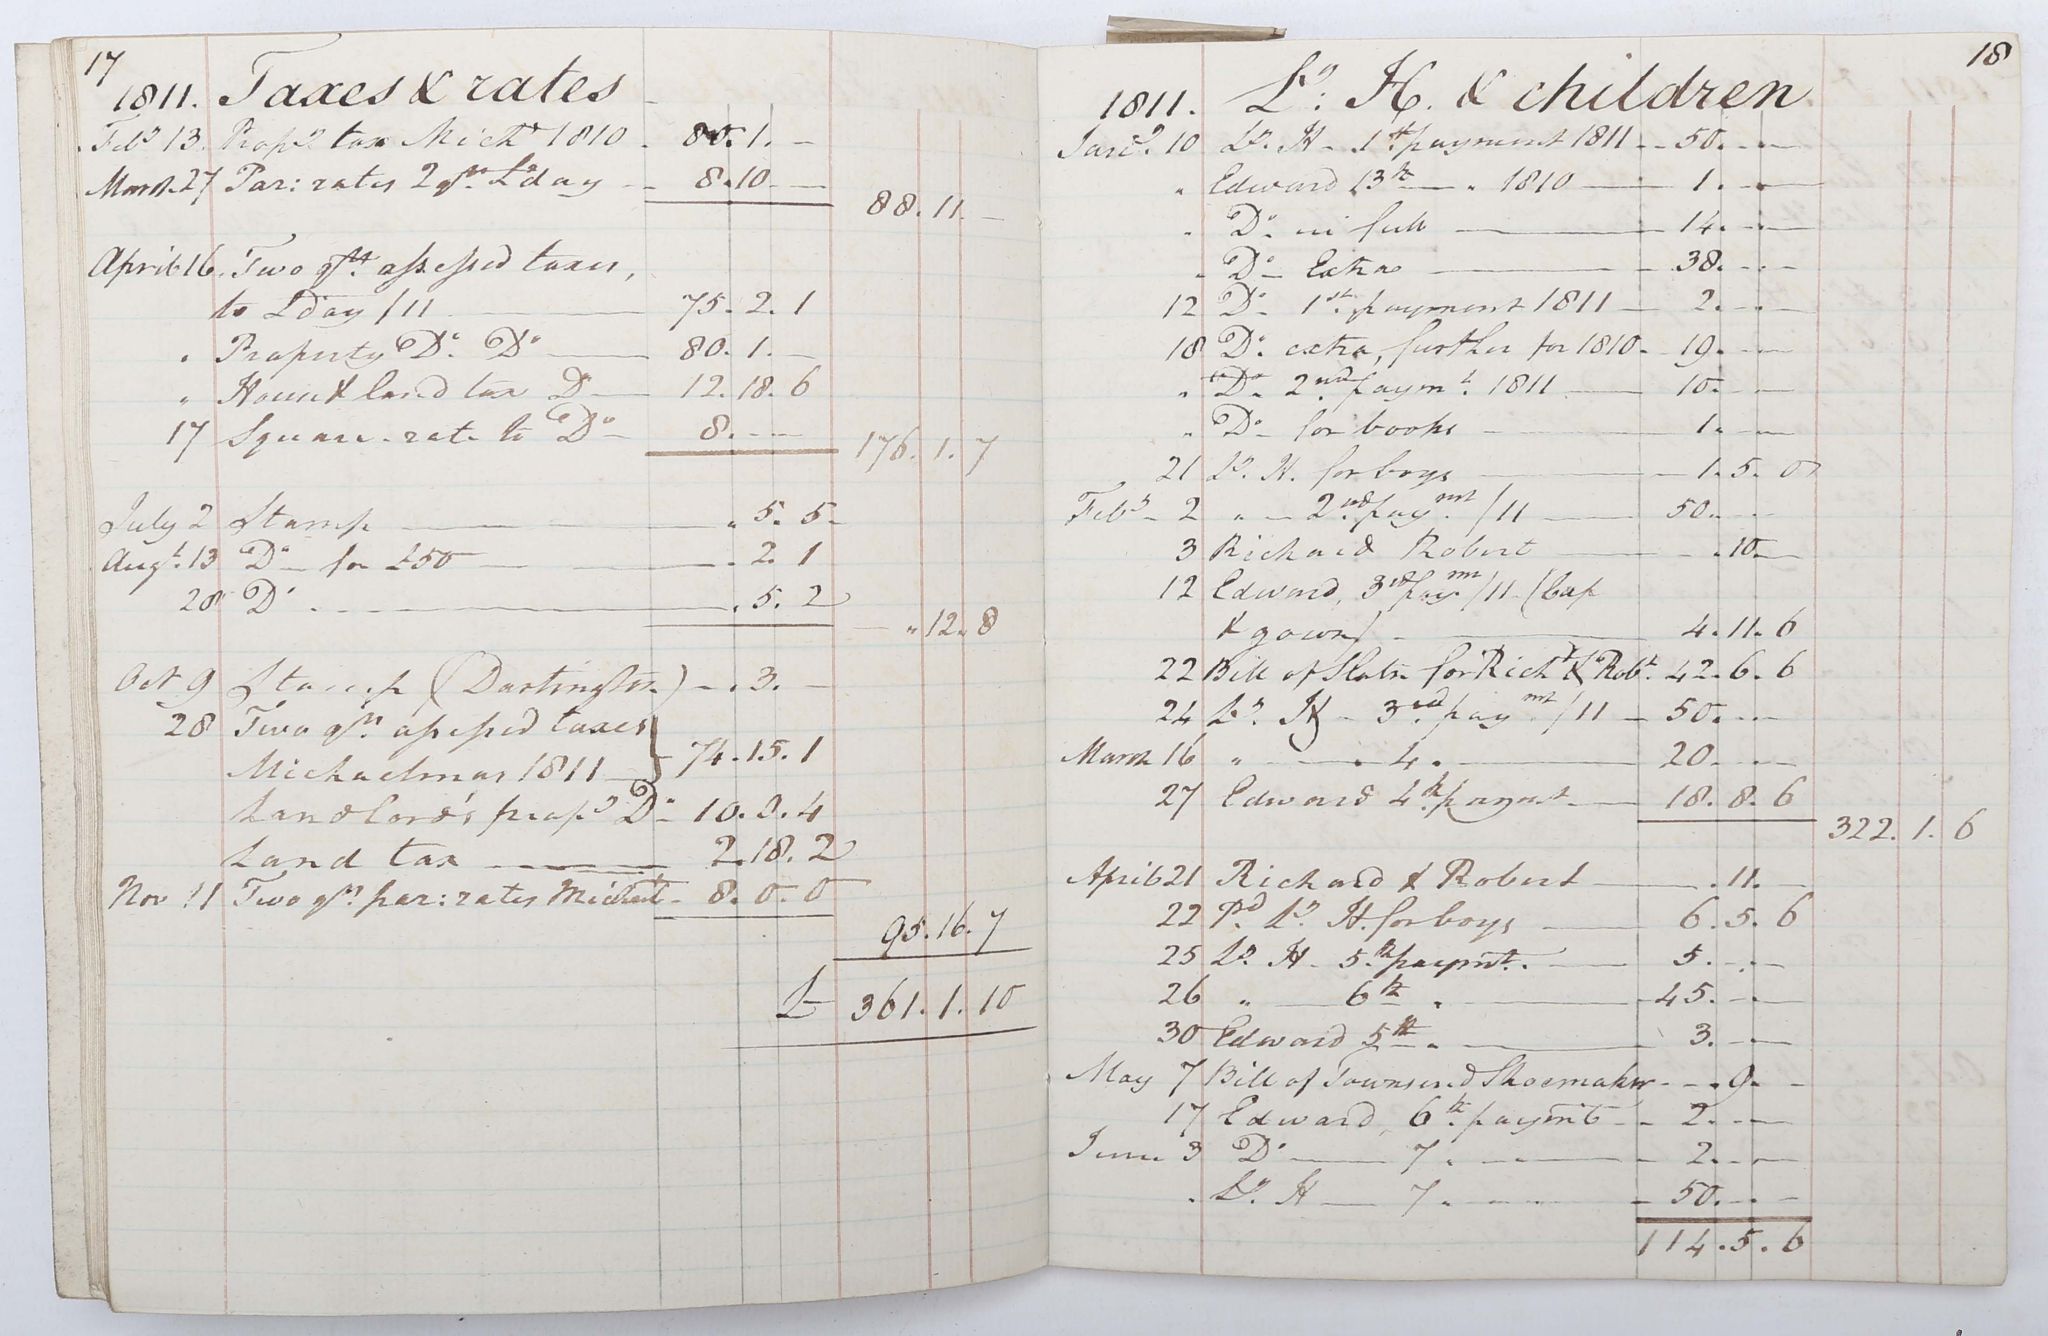 17
1811. Taxes & rates
Feby 13. Propy tax Michs 1810 - 80. 1. -
March 27 Par: rates 2 qrs Lday - 8. 10. -
88. 11. -
April 16. Two qrs assessed taxes,
to Lday /11 75. 2. 1
" Property Do. Do 80. 1. -
" House & land tax Do 12. 18. 6
17 Square-rate to Do 8. - -
176. 1. 7
July 2 Stamp " 5. 5
Augt. 13 Do for £50 - 2. 1
28 Do . 5. 2
" 12. 8
Oct 9 Stamp (Dartington) - . 3. -
28 Two qrs assessed taxes
Michaelmas 1811 74. 15. 1
Landlord's propy Do - 10. 0. 4
Land tax 2. 18. 2
Nov 11 Two qrs par: rates - 8. 0. 0
95. 16. 7
£ 361. 1. 10
18
1811. Ly: H. & children
Jany. 10 Ly. H - 1st payment 1811 - 50. - -
" Edward 13th - " 1810 - 1. - -
" Do. in full - 14. - -
" Do - Extra - 38. - -
12 Do - 1st. payment 1811 - 2. - -
18 Do. extra, further for 1810 - 19. - -
" Do. 2nd. paymt. 1811 - 10. - -
" Do - for books - 1. - -
21 Ly. H. for boys - 1. 5. 0
Feby - 2 " - 2nd. paymnt /11 - 50. - -
3 Richard Robert - . 10. -
12 Edward, 3rd paymnt /11 (Cap
& gown) - 4. 11. 6
22 Bill of for Richd & Robt. 42. 6. 6
24 Ly. H - 3rd. paymnt /11 - 50. - -
March 16 " - 4 . - 20. - -
27 Edward 4th paymt - 18. 8. 6
322. 1. 6
April 21 Richard & Robert - . 11. -
22 Pd. Ly. H. for boys - 6. 5. 6
25 Ly. H - 5th paymt. - 5. - -
26 " - 6th " - 45. - -
30 Edward 5th " - 3. - -
May 7 Bill of Townsend Shoemaker - . 9. -
17 Edward, 6th. paymt - 2. - -
June 3 Do - 7 " - 2. - -
" Ly. H - 7 " - 50. - -
114. 5. 6